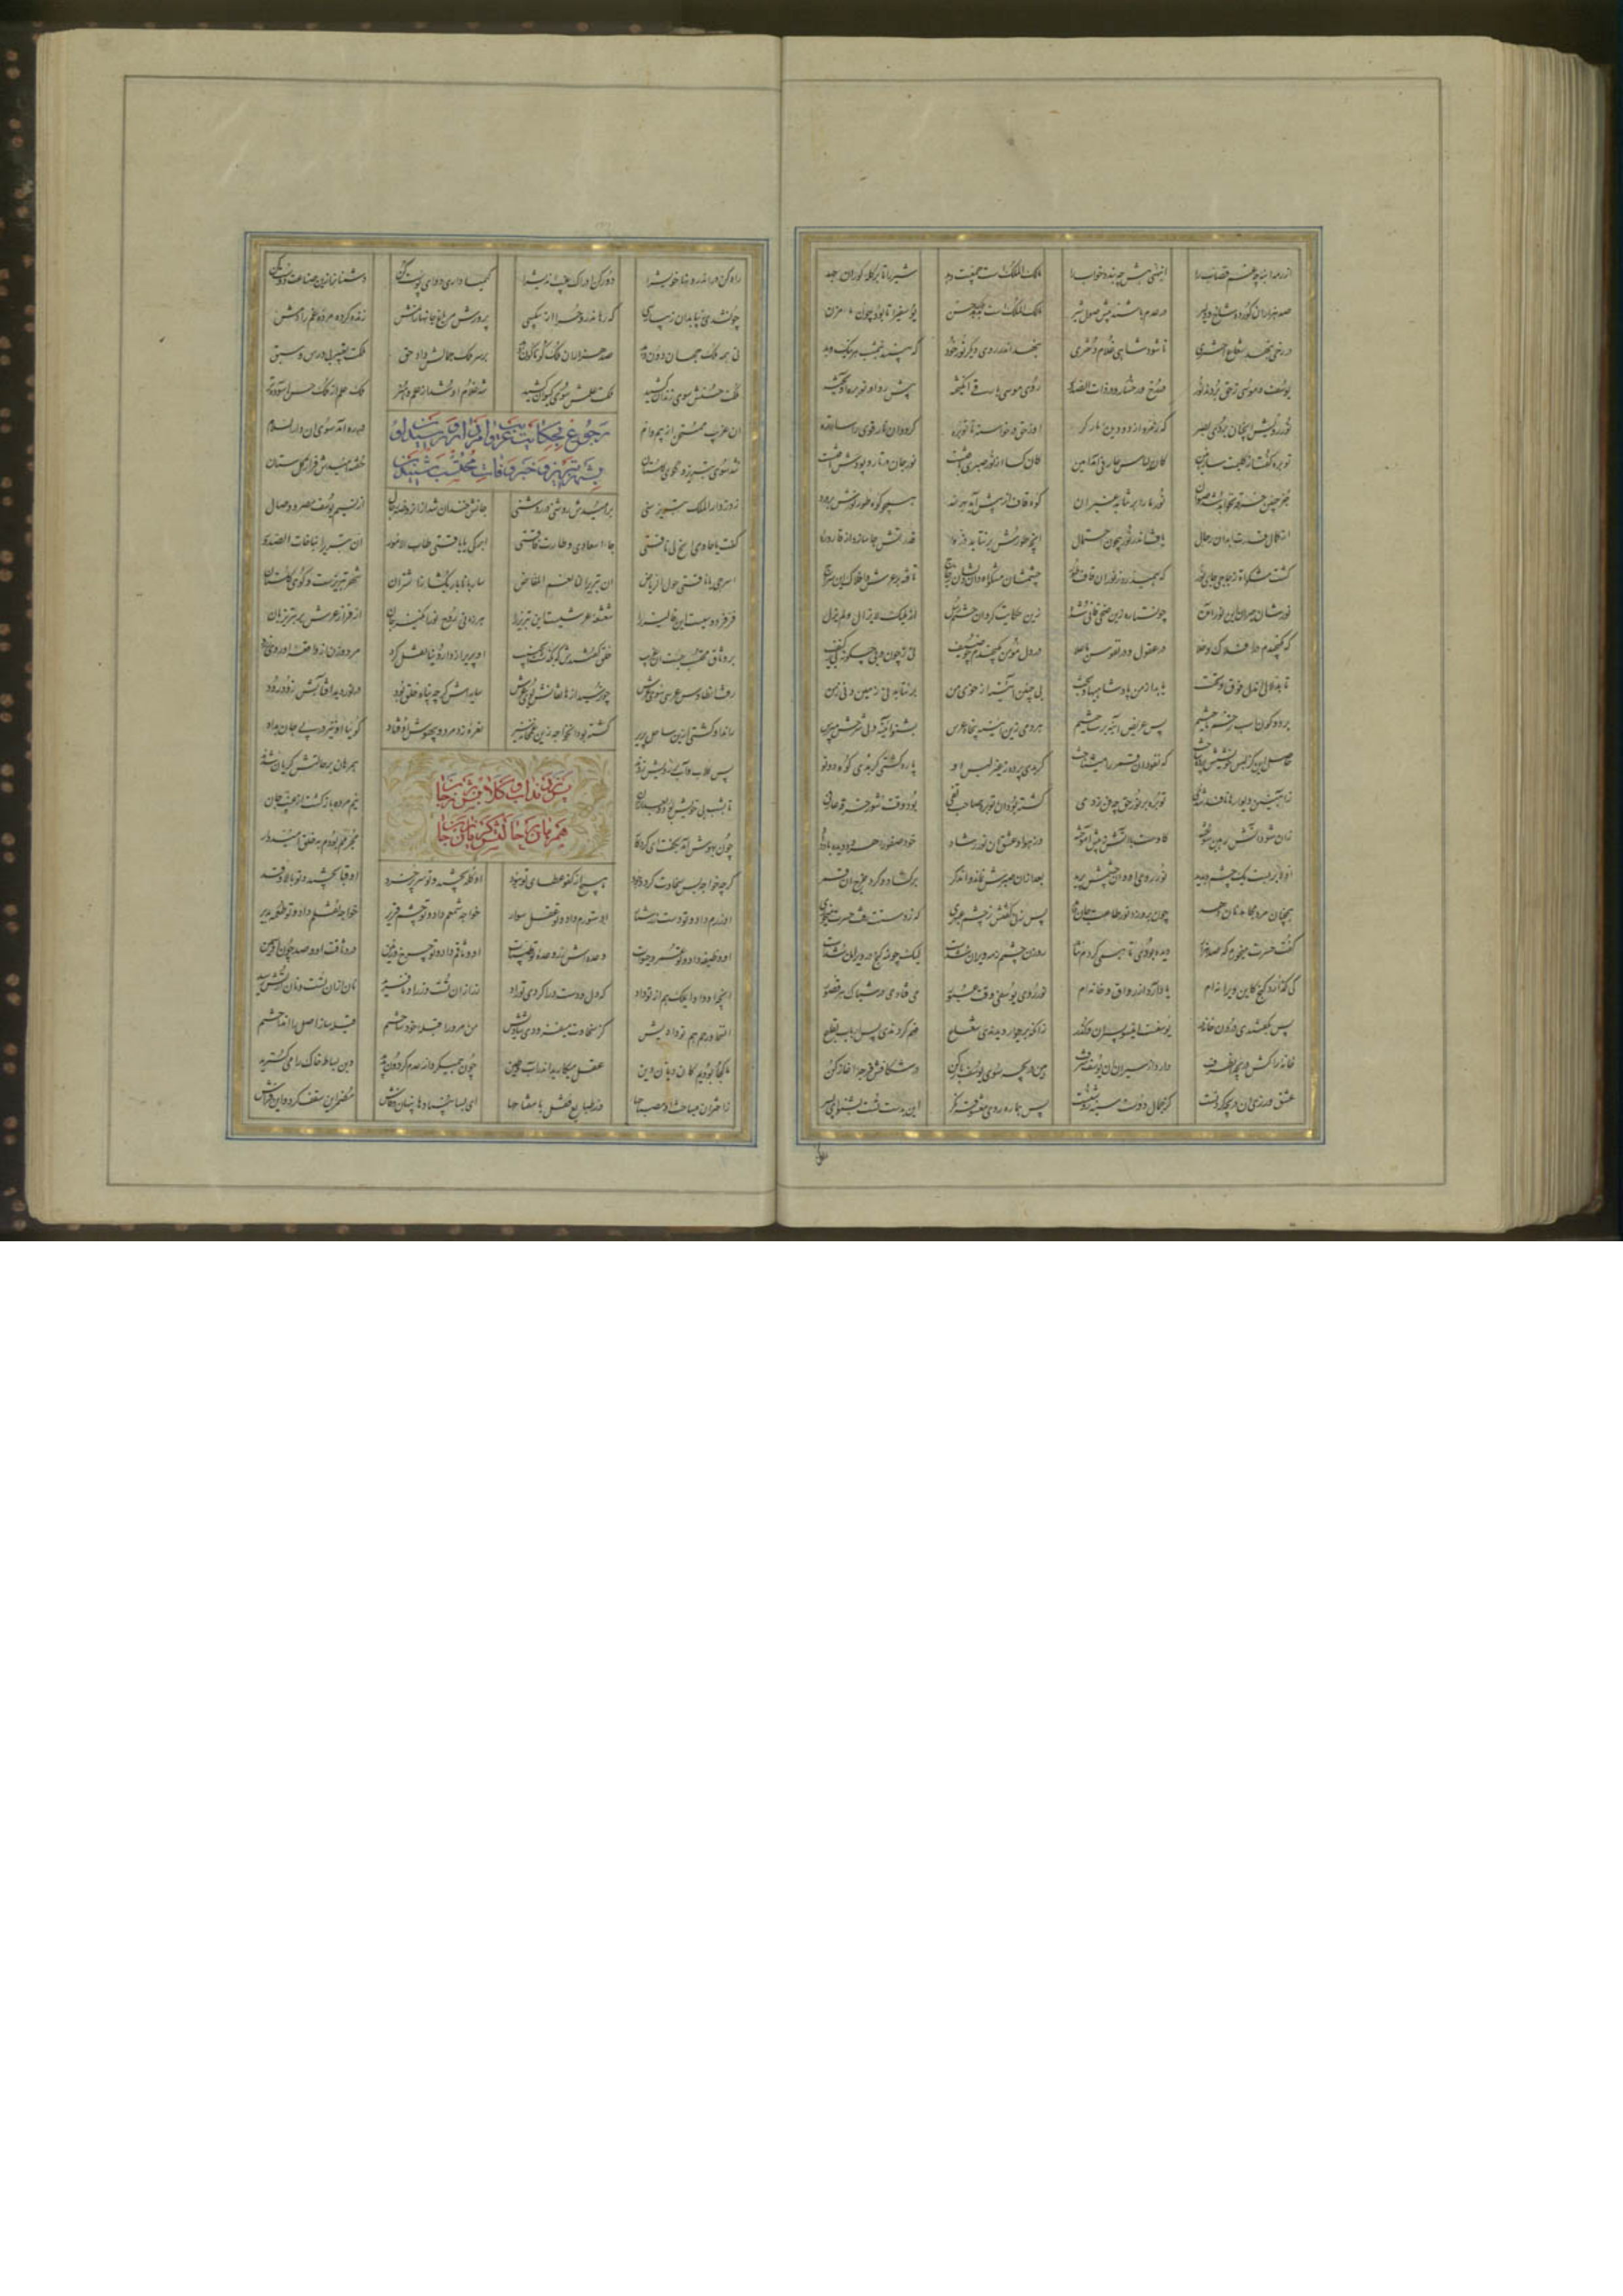 از رمه انبه چه غم قصاب را انبهی هش چه بندد خواب را مالک الملک است جمعیت دهد شیر را تا بر کله کوران جهد
صد هزاران کور ده شاخ و دلیر در عدم باشند پیش صول شیر مالک الملک است بدهد ملک حسن یوسفی را تا بود چون ماء مزن
در رخی بنهد شعاع اختری تا شود شاهی غلام دختری بنهد اندر روی دیکر نور خود که ببیند نیم شب هر نیک و بد
یوسف و موسی ز حق بردند نور در رخسار و در ذات الصدور روی موسی بارقی انکیخته پیش رو او توبره آویخته
نور رویش آنچنان بردی بصر که زمرد از دو دیده مار کر او ز حق در خواسته تا توبره کردد آن نور قوی را ساتره
توبره کفت از کلیمت ساز هین کان لباس عارفی آمد امین کان کسا از نور صبری یافتست نور جان در تار و پودش تافتست
جز چنین خرقه نخواهد شد صوان نور ما را بر نتابد غیر آن کوه قاف ار پیش آید بهر سد همچو کوه طور نورش بردرد
از کمال قدرت ابدان رجال یافت اندر نور بیچون احتمال آنچه طورش بر نتابد ذره قدرتش جا سازد از قاروره
کشت مشکاة و زجاجی جای نور که همی درد ز نور آن قاف و طور جسمشان مشکاة دان دلشان زجاج تافته بر عرش و افلاک این سراج
نورشان حیران این نور آمده چون ستاره زین ضحی فانی شده زین حکایت کرد آن ختم رسل از ملیک لایزال و لم یزل
که نکنجیدم در افلاک و خلا در عقول و در نفوس با علا در دل مؤمن بکنجیدم چو ضیف بی ز چون و بی چکونه بی ز کیف
تا بدلالی آن دل فوق و تحت یابد از من پادشاهیها و بخت بی چنین آیینه از خوبی من برنتابد نی زمین و نی زمن
بر دو کون اسب ترحم تاختیم پس عریض آیینه بر ساختیم هر دمی زین آینه پنجاه عرس بشنو آیینه ولی شرحش مپرس
حاصل این کز لبس خویشش پرده ساخت که نفوذ آن قمر را میشناخت کر بدی پرده ز غیر لبس او پاره کشتی کر بدی کوه دوتو
ز آهنین دیوارها نافذ شدی توبره با نور حق چه فن زدی کشته بود آن توبره صاحب تفی بود وقت شور خرقه عارفی
زان شود آتش رهین سوخته کاوست با آتش ز پیش آموخته وز هوا و عشق آن نور رشاد خود صفورا هر دو دیده باد داد
اولا بر بست یک چشم و بدید نور روی او و آن چشمش پرید بعد از آن صبرش نماند و آن دکر برکشاد و کرد خرج آن قمر
همچنان مرد مجاهد نان دهد چون برو زد نور طاعت جان دهد پس زنی کفتش ز چشم عبهری که ز دستت رفت حسرت میخوری
کفت حسرت میخورم که صد هزار دیده بودی تا همی کردم نثار روزن چشمم ز مه ویران شدست لیک مه چون کنج در ویران نشست
کی کذارد کنج کاین ویرانه ام یاد آرد از رواق و خانه ام نور روی یوسفی وقت عبور می فتادی در شباک هر قصور
پس بکفتندی درون خانه در یوسفست این سو بسیران و کذر زانکه بر دیوار دیدندی شعاع فهم کردندی پس اصحاب بقاع
خانه را کش دریچه ست آن طرف دارد از سیران آن یوسف شرف هین دریچه سوی یوسف باز کن وز شکافش فرجه آغاز کن
عشق ورزی آن دریچه کردنست کز جمال دوست سینه روشنست پس هماره روی معشوقه نکر این بدست تست بشنو ای پسر
راه کن در اندرونها خویش را دور کن ادراک غیراندیش را کیمیا داری دوای پوست کن دشمنان را زین صناعت دوست کن
چون شدی زیبا بدان زیبا رسی که رهاند روح را از بیکسی پرورش مر باغ جانها را نمش زنده کرده مرده غم را دمش
نی همه ملک جهان دون دهد صد هزاران ملک کوناکون دهد بر سر ملک جمالش داد حق ملکت تعبیر بی درس و سبق
ملکت حسنش سوی زندان کشید ملکت علمش سوی کیوان کشید شه غلام او شد از علم و هنر ملک علم از ملک حسن استوده تر
رجوع بحکایت غریب وامدار و رسیدن او
بشهر تبریز و خبر وفات محتسب شنیدن
آن غریب ممتحن از بیم وام در ره آمد سوی آن دار السلام
شد سوی تبریز و کوی کلستان خفته امیدش فراز کل ستان
زد ز دار الملک تبریز سنی بر امیدش روشنی بر روشنی جانش خندان شد از آن روضه رجال از نسیم یوسف مصر وصال
کفت یا حادی انخ لی ناقتی جاء اسعادی و طارت فاقتی ابرکی یا ناقتی طاب الامور ان تبریزا مناخات الصدور
اسرحی یا ناقتی حول الریاض ان تبریزا لنا نعم المفاض ساربانا بار بکشا ز اشتران شهر تبریزست و کوی کلستان
فر فردوسیست این پالیز را شعشعه عرشیست این تبریز را هر زمانی روح نور انکیز جان از فراز عرش بر تبریزیان
چون وثاق محتسب جست آن غریب خلق کفتندش که بکذشت آن حبیب او پریر از دار دنیا نقل کرد مرد و زن از واقعه او روی زرد
رفت آن طاوس عرشی سوی عرش چون رسید از هاتفانش بوی عرش سایه اش کرچه پناه خلق بود در نوردید آفتابش زود زود
راند او کشتی ازین ساحل پریر کشته بود آن خواجه زین غمخانه سیر نعره زد مرد و بیهوش اوفتاد کوییا او نیز در پی جان بداد
پس کلاب و آب بر رویش زدند همرهان بر حالتش کریان شدند
تا بشب بی خویش بود و بعد از آن نیم مرده باز کشت از غیب جان
چون بهوش آمد بکفت ای کردکار مجرمم بودم بخلق امیدوار
کرچه خواجه بس سخاوت کرد و جود هیچ آن کفو عطای تو نبود او کله بخشید و تو سر پر خرد او قبا بخشید و تو بالا و قد
او زرم داد و تو دست زرشمار او ستورم داد و تو عقل سوار خواجه شمعم داد و تو چشم قریر خواجه نقلم داد و تو طعمه پذیر
او وظیفه داد و تو عمر و حیات وعده اش زر وعده تو طیبات او وثاقم داد و تو چرخ و زمین در وثاقت او و صد چون او سمین
آنچه او داد ای ملک هم از تو داد که دل و دست ورا کردی تو راد زر از آن تست و زر او نافرید نان از آن تست و نان از تش رسید
آن سخا و رحم هم تو دادیش کز سخاوت میفزودی شادیش من مر او را قبله خود ساختم قبله ساز اصل را انداختم
ما کجا بودیم کان دیان دین عقل میکارید اندر آب و طین چون همی کرد از عدم کردون پدید وین بساط خاک را می کسترید
ز اختران میساخت او مصباحها وز طبایع قفل با مفتاحها ای بسا بنیادها پنهان و فاش مضمر این سقف کرد و این فراش